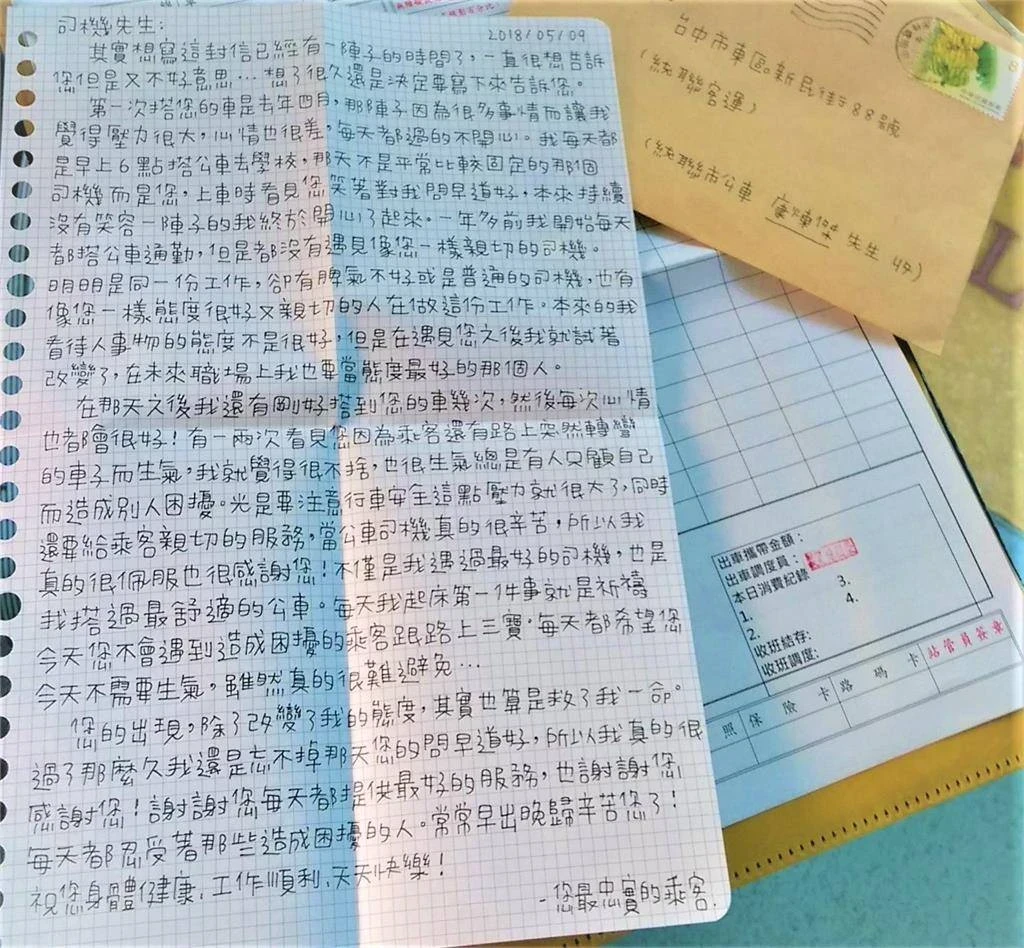 司機先生：
2018/05/09
其實想寫這封信已經有一陣子的時間了，一直很想告訴
您但是又不好意思…想了很久還是決定要寫下來告訴您。
第一次搭您的車是去年四月，那陣子因為很多事情而讓我
覺得壓力很大，心情也很差，每天都過的不開心。我每天都
是早上6點搭公車去學校，那天不是平常比較固定的那個
司機而是您，上車時看見您笑著對我問早道好，本來持續
沒有笑容一陣子的我終於開心了起來。一年多前我開始每天
都搭公車通勤，但是都沒有遇見像您一樣親切的司機。
明明是同一份工作，卻有脾氣不好或是普通的司機，也有
像您一樣態度很好又親切的人在做這份工作。本來的我
看待人事物的態度不是很好，但是在遇見您之後我就試著
改變了，在未來職場上我也要當態度最好的那個人。
在那天之後我還有剛好搭到您的車幾次，然後每次心情
也都會很好！有一兩次看見您因為乘客還有路上突然轉彎
的車子而生氣，我就覺得很不捨，也很生氣總是有人只顧自己
而造成別人困擾。光是要注意行車安全這點壓力就很大了，同時
還要給乘客親切的服務，當公車司機真的很辛苦，所以我
真的很佩服也很感謝您！不僅是我遇過最好的司機，也是
我搭過最舒適的公車。每天我起床第一件事就是祈禱
今天您不會遇到造成困擾的乘客跟路上三寶。每天都希望您
今天不需要生氣，雖然真的很難避免…
您的出現，除了改變了我的態度，其實也算是救了我一命。
過了那麼久我還是忘不掉那天您的問早道好，所以我真的很
感謝您！謝謝您每天都提供最好的服務，也謝謝您
每天都忍受著那些造成困擾的人。常常早出晚歸辛苦您了！
祝您身體健康，工作順利，天天快樂！
-您最忠實的乘客.
台中市東區新民街88號
(統聯客運)
(統聯市公車 先生 收)
出車攜帶金額：
出車調度員：
本日消費紀錄
1.
2.
3.
4.
收班結存：
收班調度：
站管員簽章
照 保 險 卡 路 碼 卡